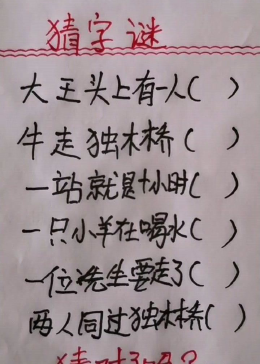 猜字谜
大王头上有一人( )
牛走独木桥( )
一站就是十小时( )
一只小羊在喝水( )
一位先生要走了( )
两人同过独木桥( )